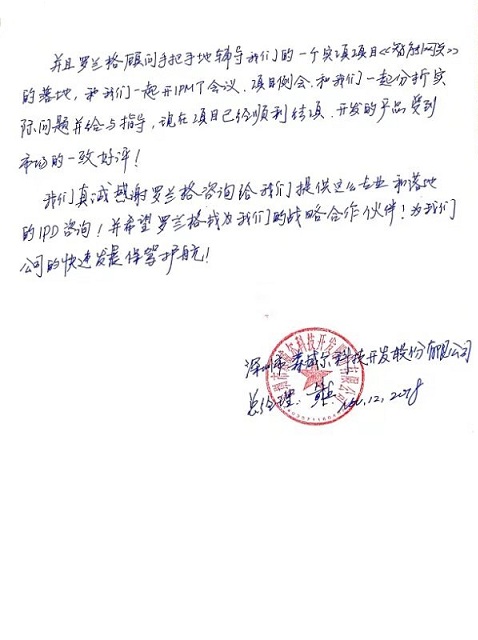 并且罗兰格顾问手把手地辅导我们的一个实项项目《智能网关》
的落地，和我们一起开IPMT会议、项目例会、和我们一起分析实
际问题并给与指导，现在项目已经顺利结项，开发的产品受到
市场的一致好评！
我们真诚感谢罗兰格咨询给我们提供这么专业和落地
的IPD咨询！并希望罗兰格成为我们的战略合作伙伴！为我们
公司的快速发展保驾护航！
深圳市莱威尔科技开发股份有限公司
总经理：
12, 2018